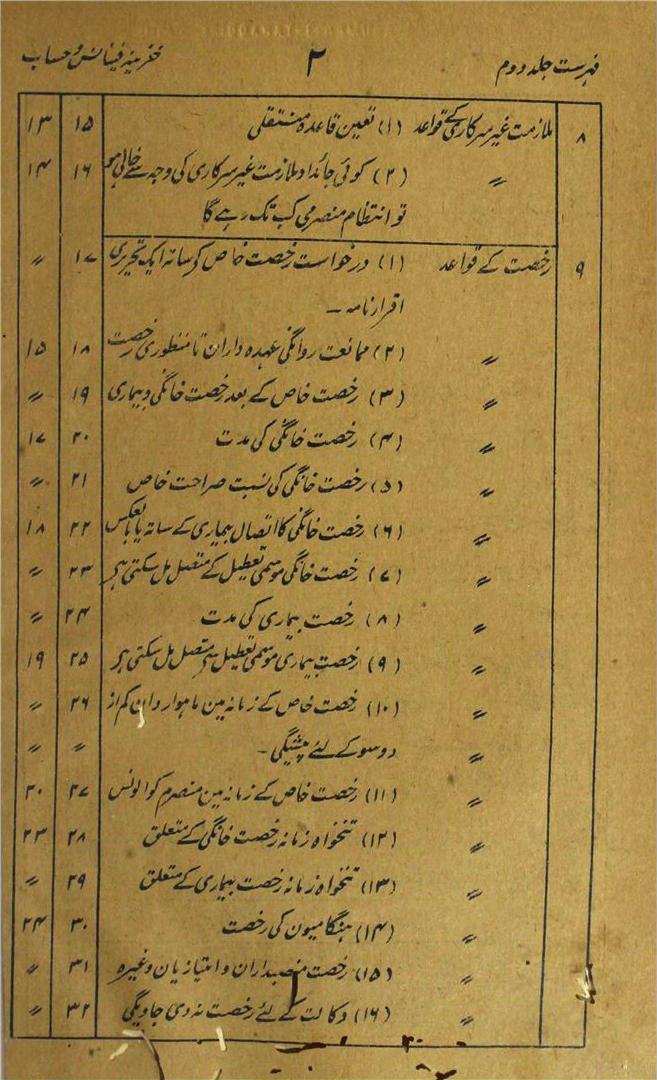 فہرست جلد دوم ۲ خزینہ فینانس و حساب
۸ ملازمت غیر سرکاری کے قواعد (۱) تعین قاعدہ مستقلی ۱۵ ۱۳
〃 (۲) کوئی جائداد ملازمت غیر سرکاری کی وجہ سے خالی ہو ۱۶ ۱۴
تو انتظام منصرمی کب تک رہے گا
۹ رخصت کے قواعد (۱) درخواست رخصت خاص کے ساتہ ایک تحریری ۱۷ 〃
اقرار نامہ ۔
〃 (۲) ممانعت روانگی عہدہ داران تا منظوری رخصت ۱۸ ۱۵
〃 (۳) رخصت خاص کے بعد رخصت خانگی و بیماری ۱۹ 〃
〃 (۴) رخصت خانگی کی مدت ۲۰ ۱۷
〃 (۵) رخصت خانگی کی نسبت صراحت خاص ۲۱ 〃
〃 (۶) رخصت خانگی کا اتصال بیماری کے ساتہ یا بالعکس ۲۲ ۱۸
〃 (۷) رخصت خانگی موسمی تعطیل کے متصل مل سکتی ہے ۲۳ 〃
〃 (۸) رخصت بیماری کی مدت ۲۴ 〃
〃 (۹) رخصت بیماری موسمی تعطیل سے متصل مل سکتی ہے ۲۵ ۱۹
〃 (۱۰) رخصت خاص کے زمانہ مین ماہوار داران کم از ۲۶ 〃
〃 دوسو کے لئے پیشگی ۔ 〃 〃
〃 (۱۱) رخصت خاص کے زمانہ مین منصرم کو الونس ۲۷ ۲۰
〃 (۱۲) تنخواہ زمانہ رخصت خانگی کے متعلق ۲۸ ۲۳
〃 (۱۳) تنخواہ زمانہ رخصت بیماری کے متعلق ۲۹ 〃
〃 (۱۴) ہنگامیون کی رخصت ۳۰ ۲۴
〃 (۱۵) رخصت منصبداران و امتیازیان وغیرہ ۳۱ 〃
〃 (۱۶) وکالت کے لئے رخصت نہ دی جاویگی ۳۲ 〃